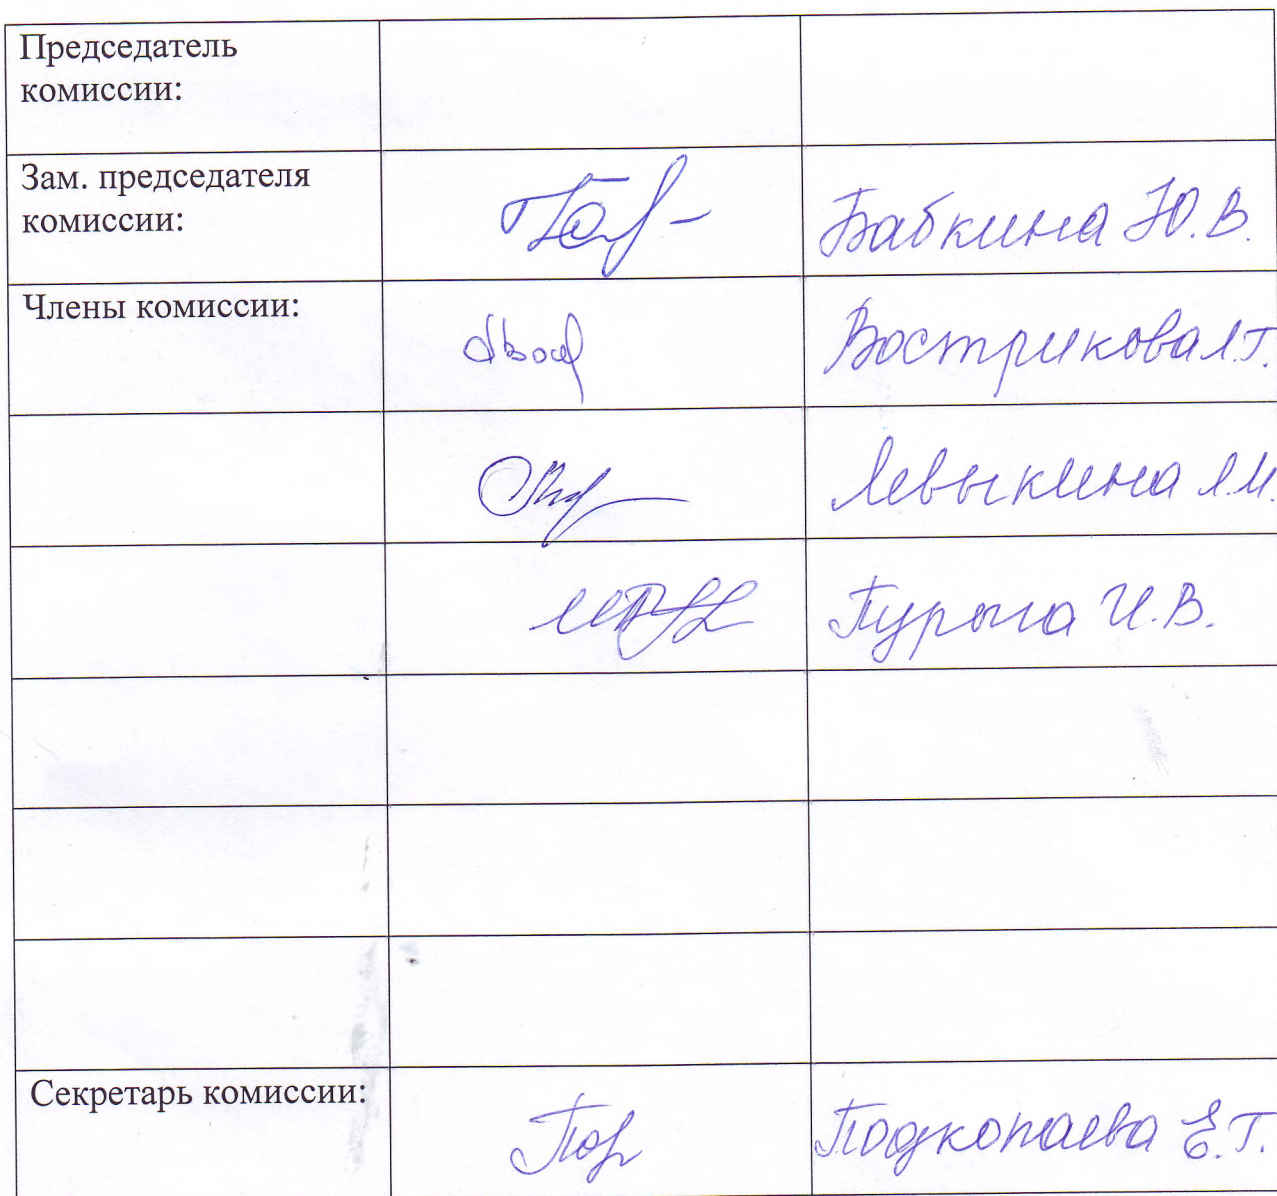 Председатель
комиссии:
Зам. председателя
комиссии:
Бабкина Ю.В.
Члены комиссии:
Вострикова Л.Г.
Левыкина Л.И.
Пурыга И.В.
Секретарь комиссии:
Подкопаева Е.Г.